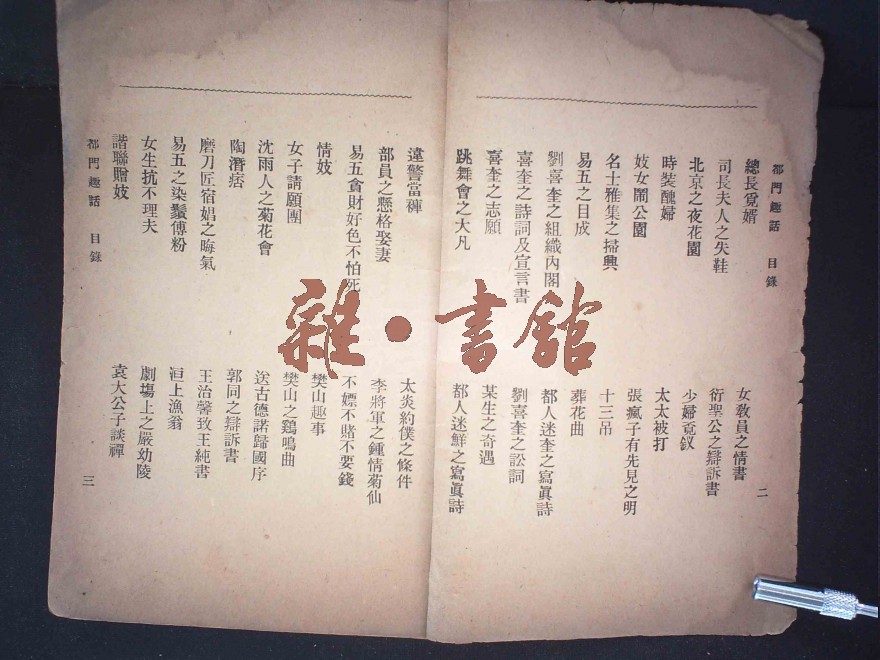 都門趣話 目錄
總長覓婿
司長夫人之失鞋
北京之夜花園
時裝醜婦
妓女鬧公園
名士雅集之掃興
易五之目成
劉喜奎之組織內閣
喜奎之詩詞及宣言書
喜奎之志願
跳舞會之大凡
女教員之情書
衍聖公之辯訴書
少婦覓釵
太太被打
張瘋子有先見之明
十三吊
葬花曲
都人迷奎之寫眞詩
劉喜奎之訟詞
某生之奇遇
都人迷鮮之寫眞詩
二
違警當褲
部員之懸格娶妻
易五貪財好色不怕死
情妓
女子請願團
沈雨人之菊花會
陶潛痞
磨刀匠宿娼之晦氣
易五之染鬚傅粉
女生抗不理夫
諧聯贈妓
太炎約僕之條件
李將軍之鍾情菊仙
不嫖不賭不要錢
樊山趣事
樊山之鷄鳴曲
送古德諾歸國序
郭同之辯訴書
王治馨致王純書
洹上漁翁
劇塲上之嚴幼陵
袁大公子談禪
都門趣話 目錄
三
雜·書館